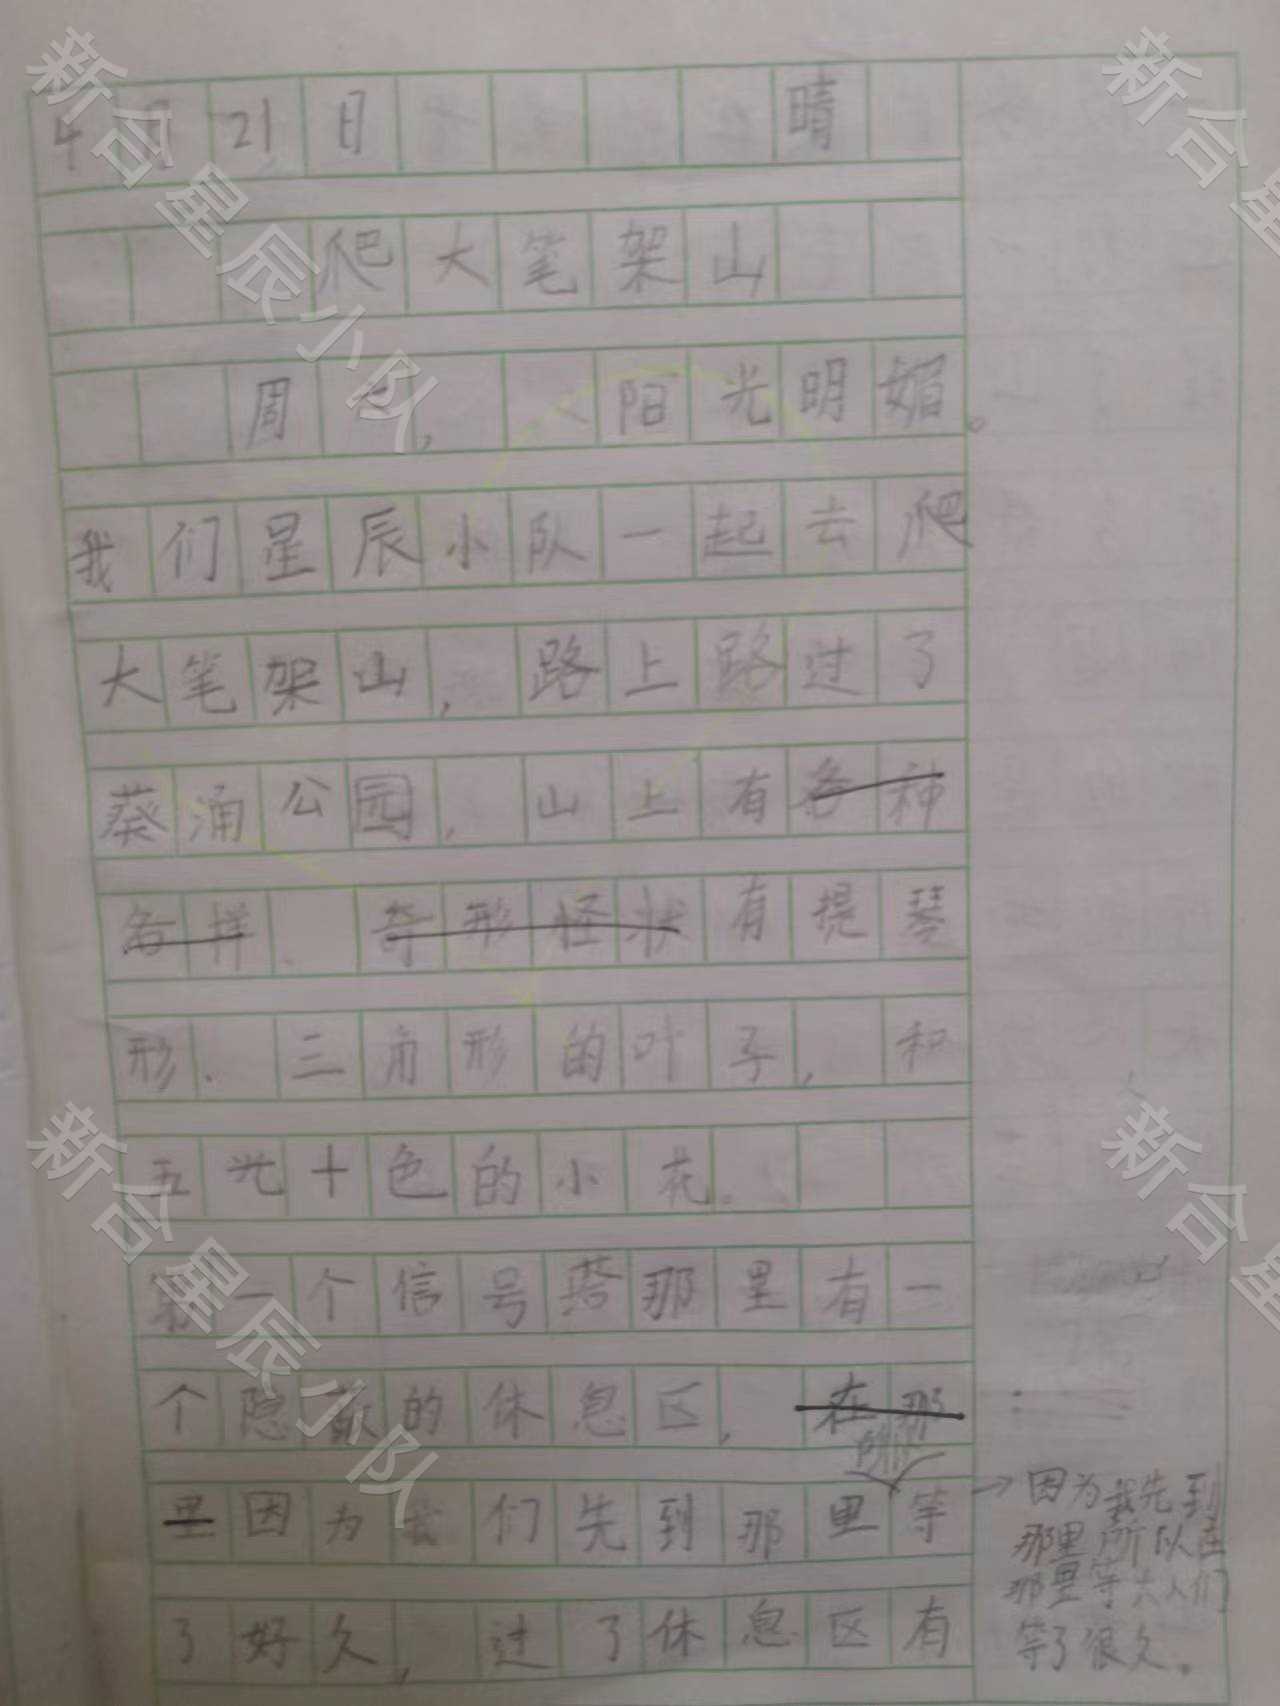 4月21日 晴
爬大笔架山
周六, 阳光明媚。
我们星辰小队一起去爬
大笔架山, 路上路过了
葵涌公园, 山上有各种
各样、奇形怪状有提琴
形、三角形的叶子, 和
五光十色的小花。
第一个信号塔那里有一
个隐蔽的休息区, 在那
里因为我们先到那里等
了好久, 过了休息区有
→因为我先到
那里所以在
那里等大人们
等了很久。
新合星辰小队
新合星
新合星辰小队
新合星